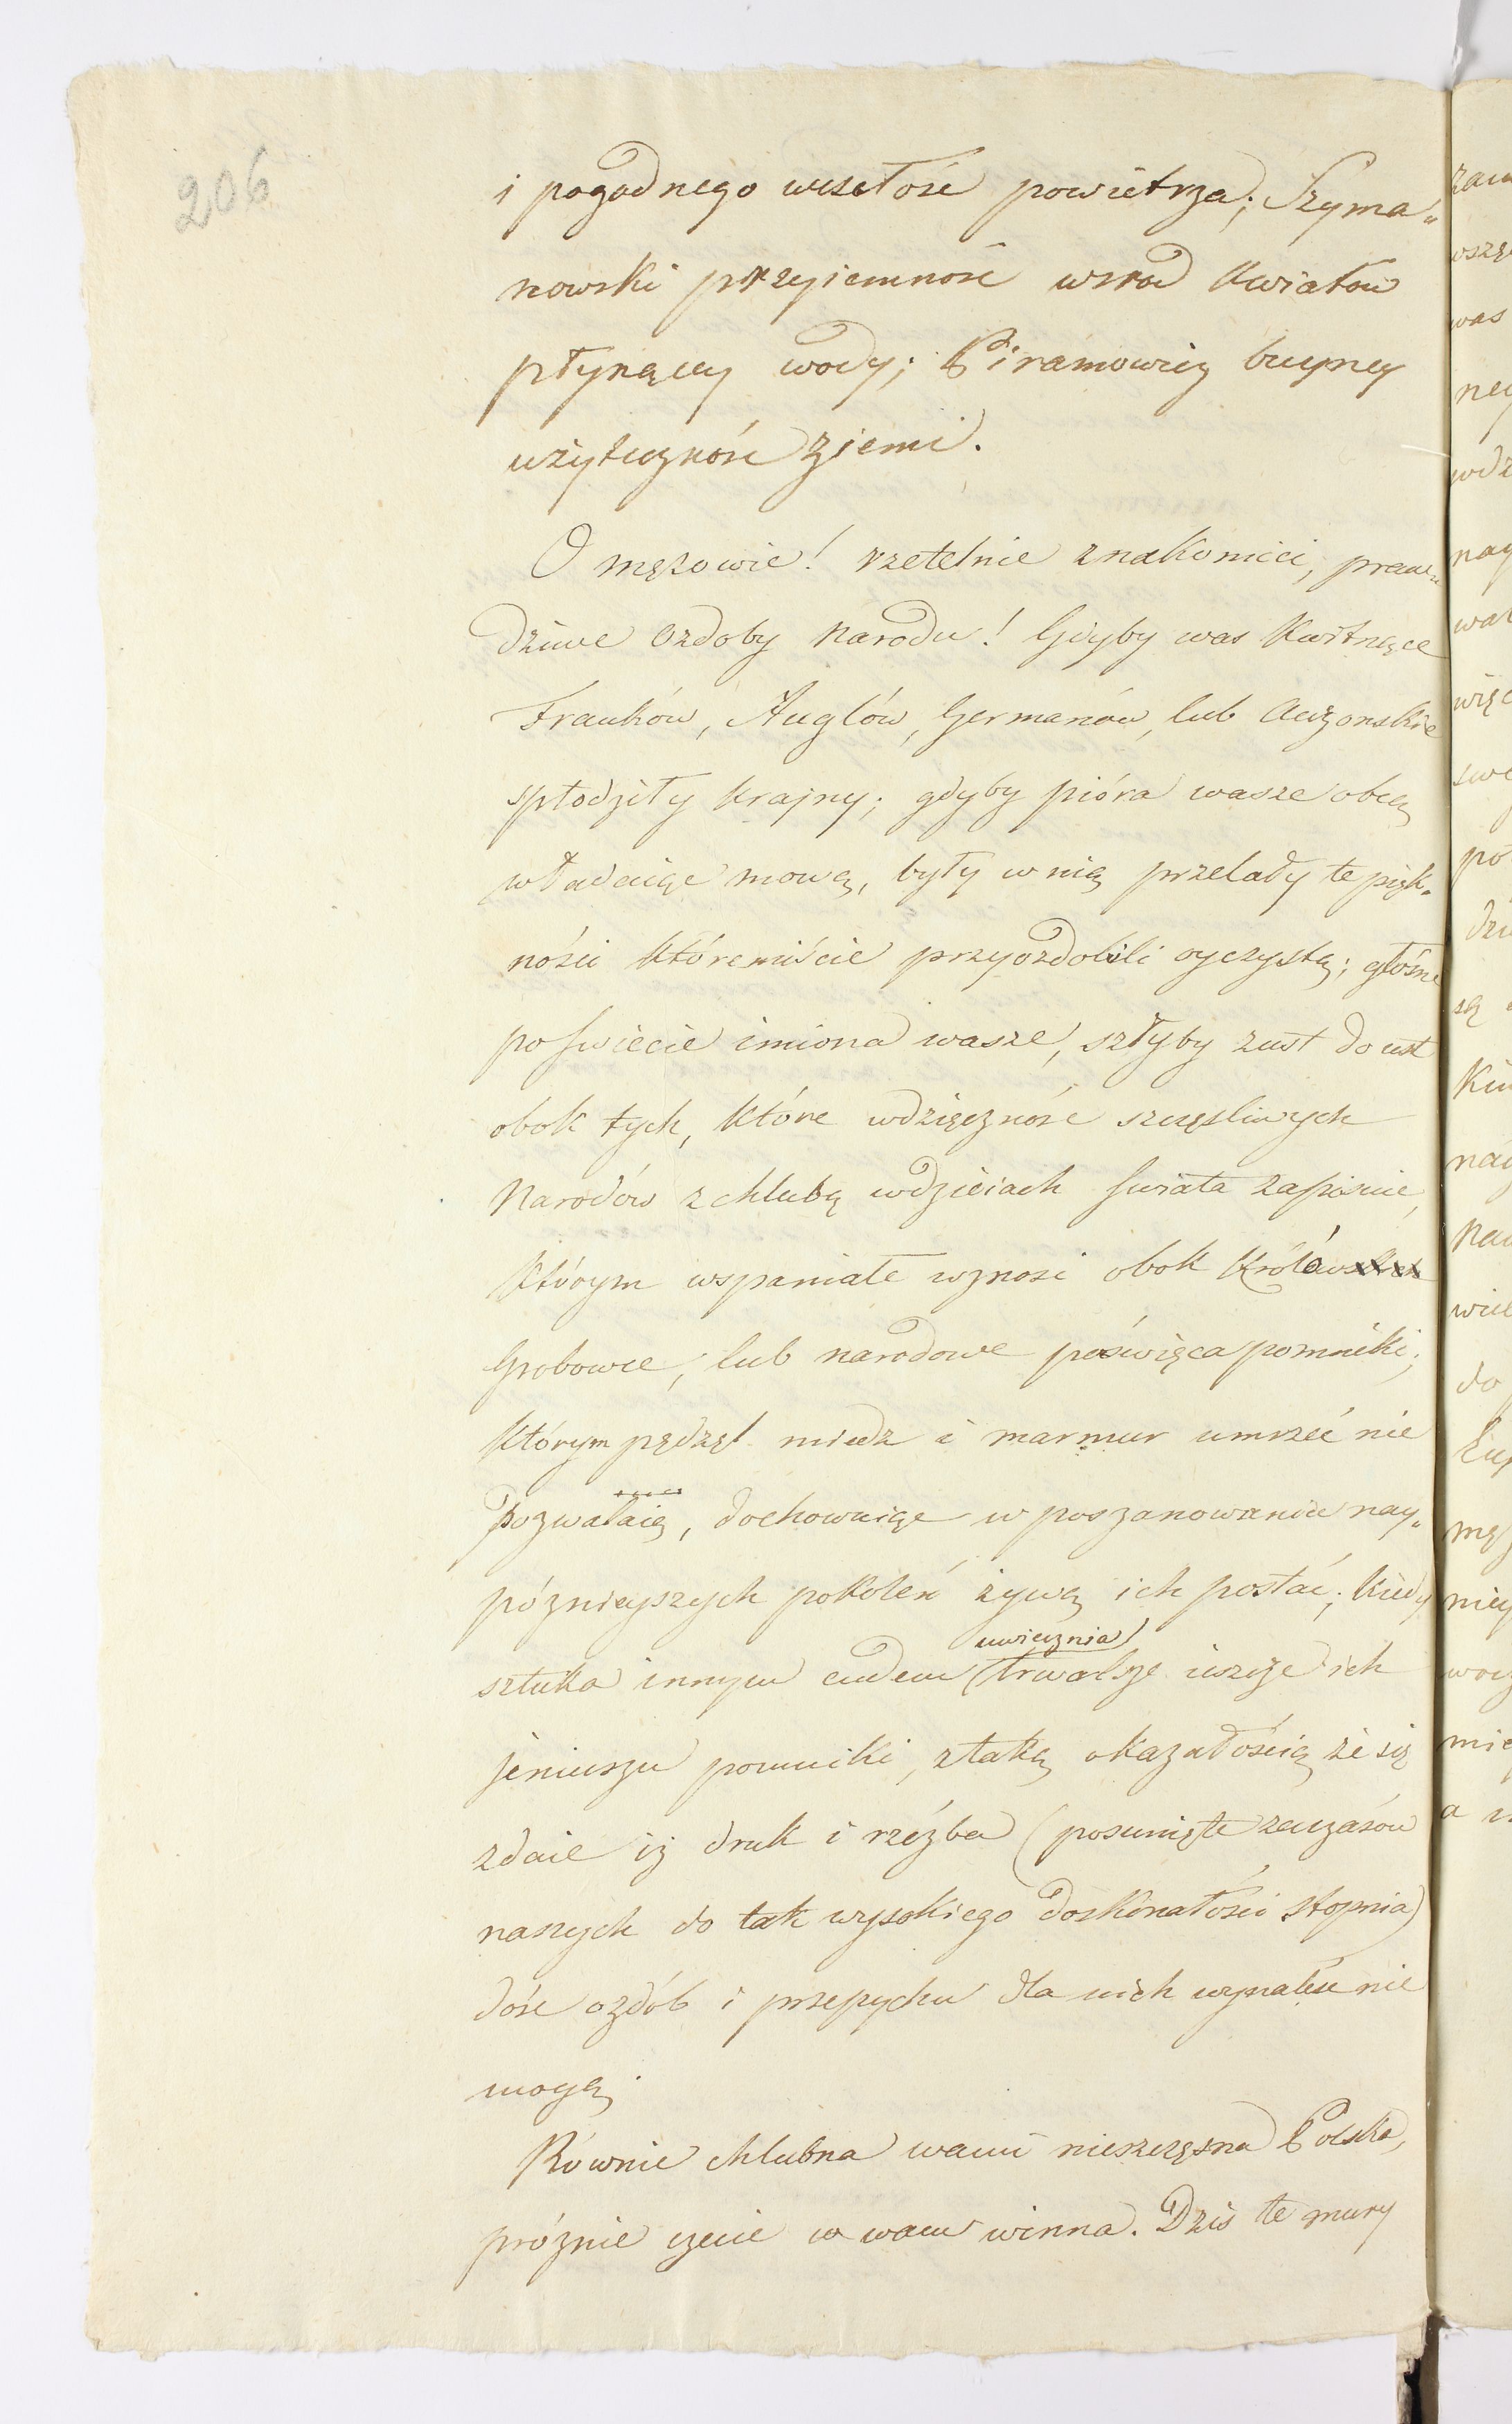 206
i pogodnego wesołość powietrza; Szyma„
nowski przyiemność wsrod kwiatów
płynącey wody; Piramowicz buyney
użyteczność ziemi.
O mężowie! rzetelnie znakomici, praw„
dziwe ozdoby narodu! Gdyby was kwitnące
Franków, Anglów, Germanów, lub Auzonskie
spłodziły krainy; gdyby pióra wasze obcą
władaiąc mową, były w nią przelały te pięk„
ności któremiście przyozdobili oyczystą; głośne
po świecie imiona wasze, szłyby z ust do ust
obok tych, które wdzięczność szczęśliwych
Narodów z chlubą w dzieiach świata zapisuie,
którym wspaniałe wznosi obok Królów
Grobowce, lub narodowe poświęca pomniki;
którym pędzel miedz i marmur umrzeć nie
Pozwalaią, dochowuiąc w poszanowaniu nay„
późnieyszych pokoleń żywą ich postać; kiedy
uwiecznia
sztuka innym cudem (trwalsze ieszcze ich
jeniuszu pomniki, z taką okazałością że się
zdaie iż druk i rzéźba (posunięte za czasów
naszych do tak wysokiego doskonałości stopnia)
dość ozdób i przepychu dla nich wynaleść nie
mogą.
Równie chlubna wami nieszczęsna Polska,
próżnie czcić w was winna. Dziś te mury
zaw
wszę
was
ney
wdz
nay
wal
więc
swe
po
dzi
są
Kie
nay
Na
wiel
do
męż
niey
mie
a